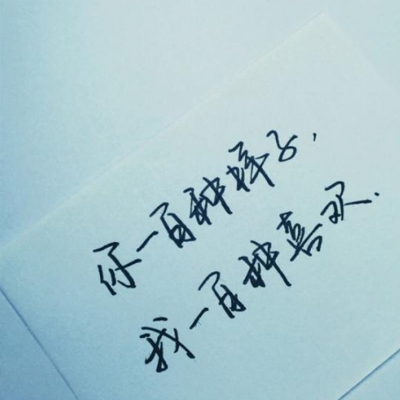 你一百种样子，
我一百种喜欢.